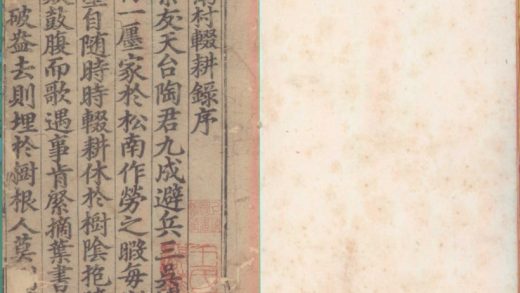 村輟耕錄序
友天台陶君九成避兵三吳
一廛家於松南作勞之暇每
墨自随時時輟耕休於樹陰抱
鼓腹而歌遇事肯綮摘葉書
破盎去則埋於樹根人莫